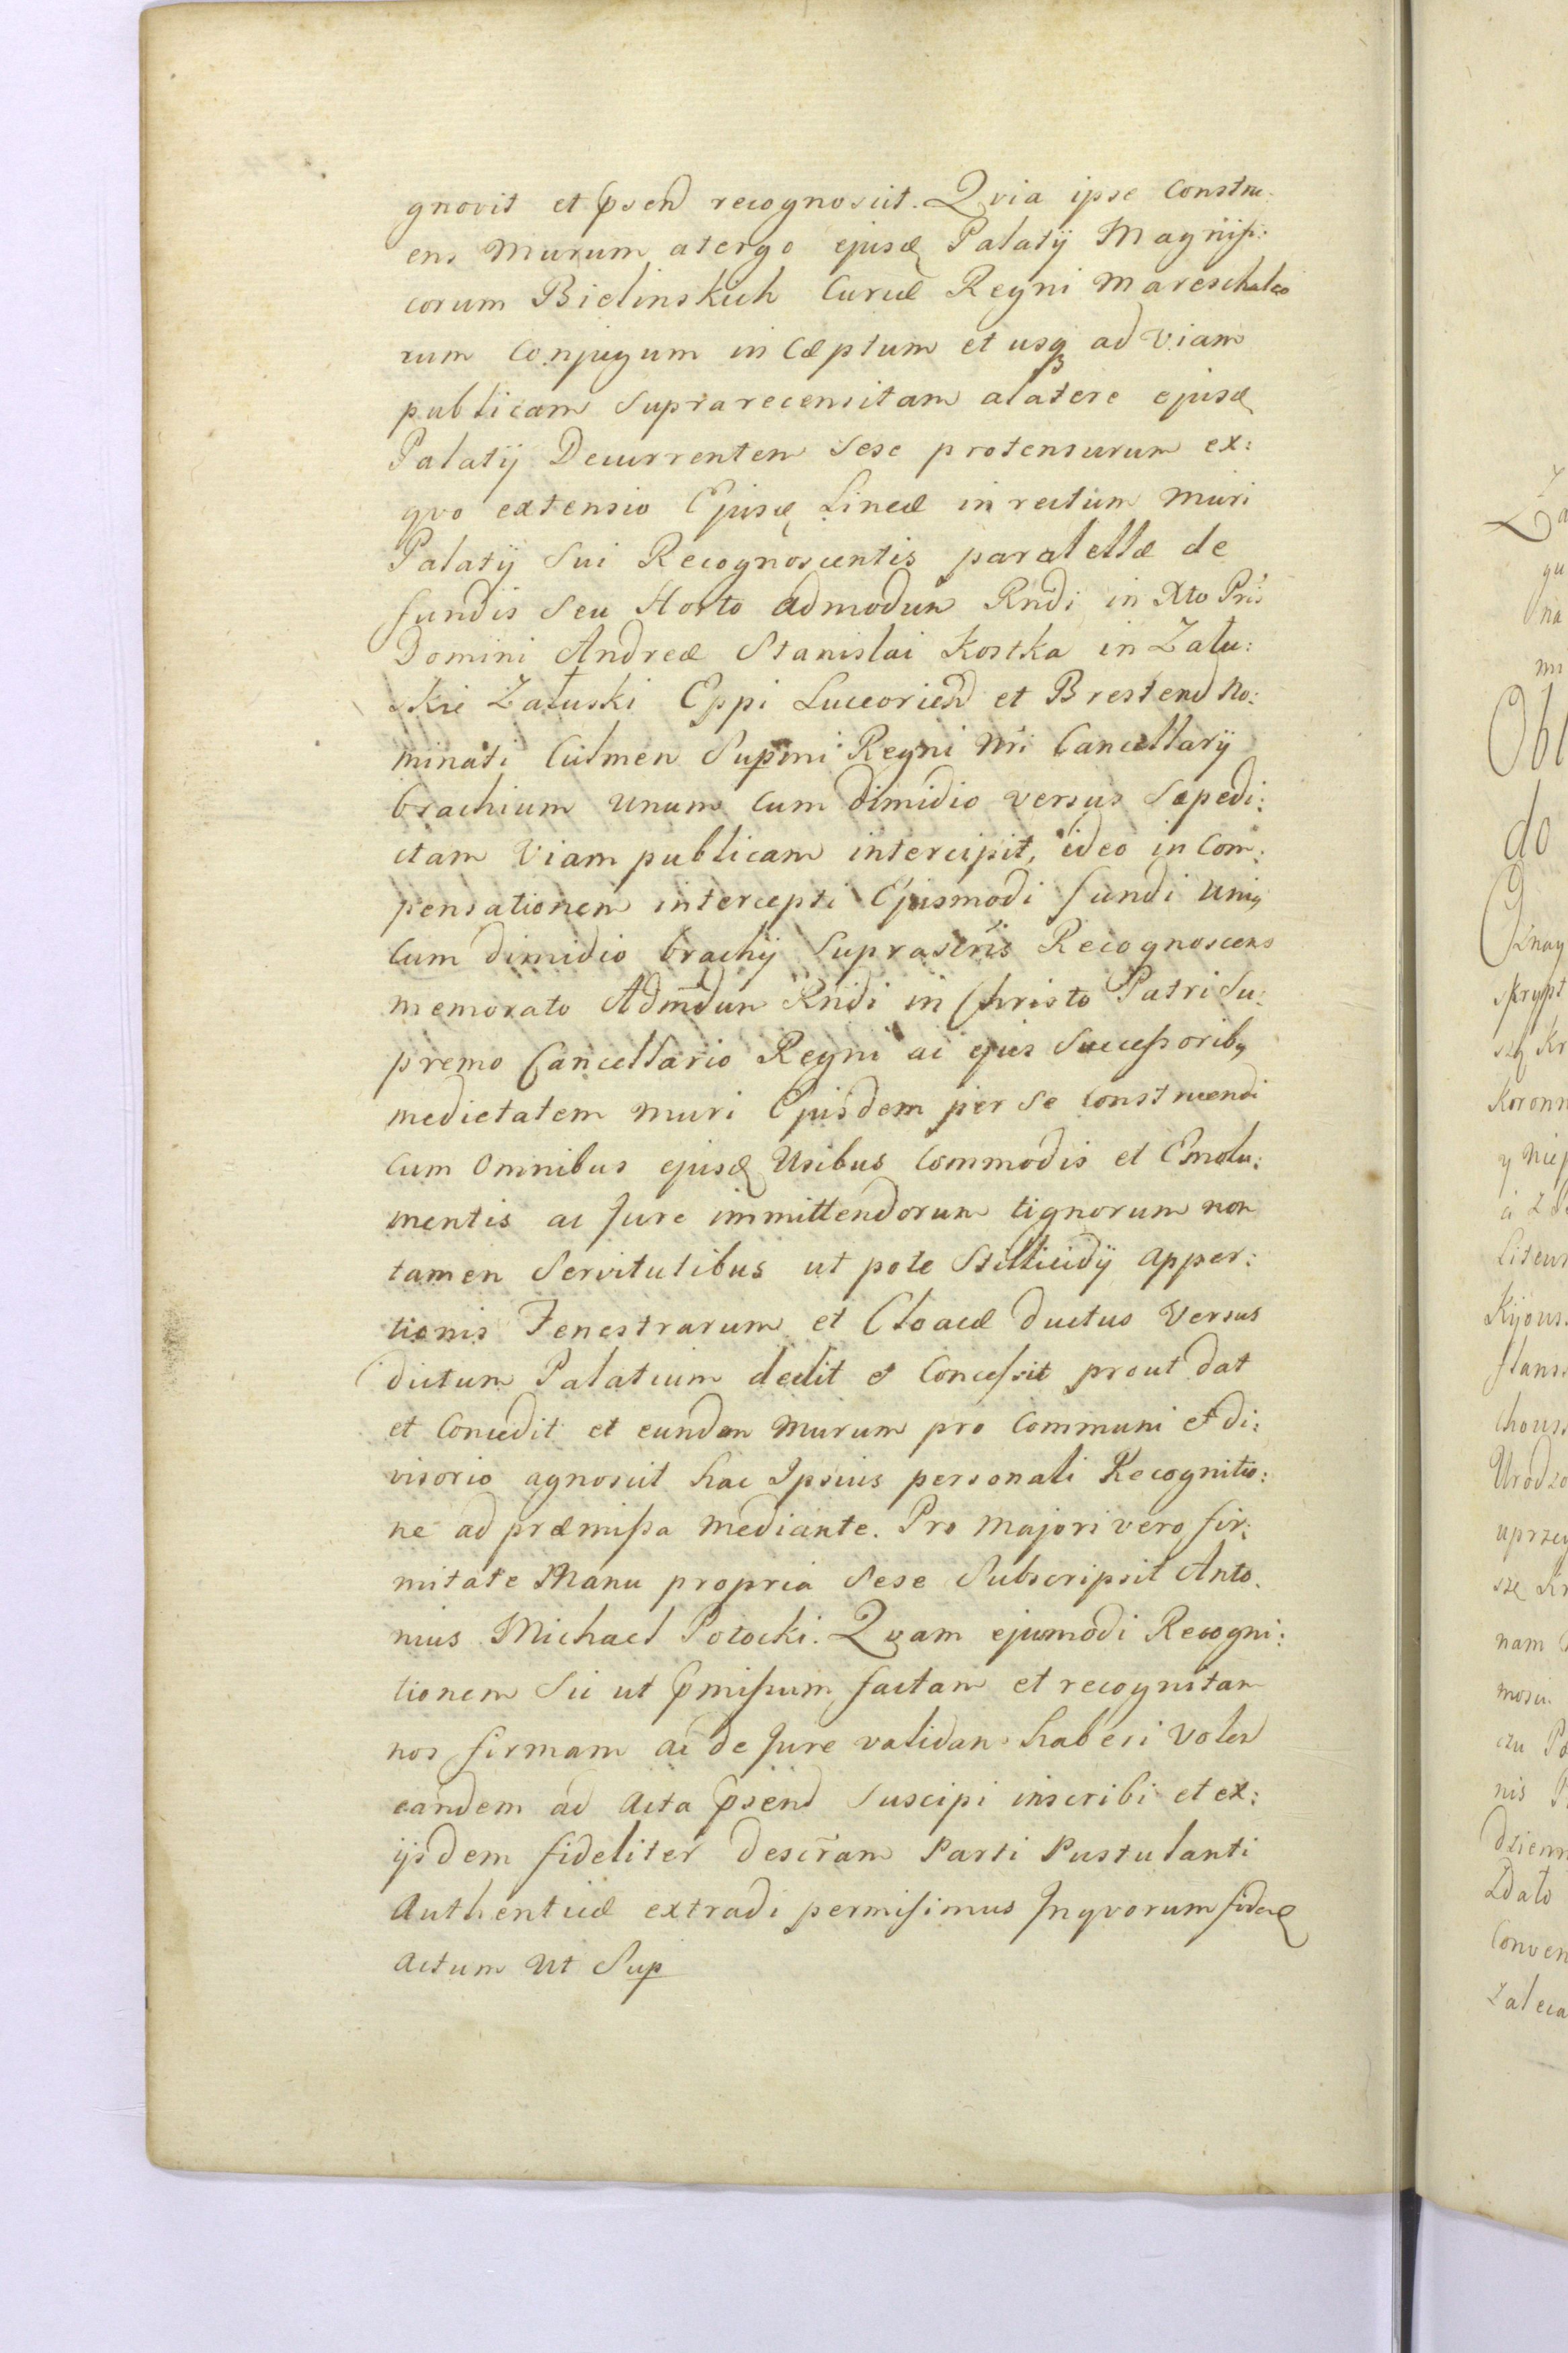 gnovit et psend recognoscit. Qvia ipse Constru:
ens Murum atergo ejusd Palatij Magnifi:
corum Bielinskich Curiæ Regni Mareschalco
rum Conjugum in Cæptum et usq ad viam
publicam Suprarecensitam alatere ejusd
Palatij Decurrentem Sese protensurum ex:
qvo extensio Ejusd Lineæ in rectum Muri
Palatij Sui Recognoscentis paralellæ de
fundis Seu Horto admodum Rndi in Xto Pris
Domini Andreæ Stanislai Kostka in Zalu:
skie Załuski Eppi Luceorien et Bresten No:
minati Culmen Supmi Regni Nri Cancellarij
brachium Unum Cum dimidio versus Sæpedi:
ctam Viam publicam intercipit, ideo in Com:
pensationem intercepti Ejusmodi fundi Uniq
Cum dimidio brachij Suprascris Recognoscens
memorato Admdum Rndi in Christo Patri Su:
premo Cancellario Regni ac ejus Successoribq
medietatem muri Ejusdem per Se Construendi
Cum Omnibus ejusd Usibus Commodis et Emolu:
mentis ac Jure immittendorum tignorum non
tamen Servitutibus ut pote Stillicidij Apper:
tionis Fenestrarum et Cloacæ ductus Versus
dictum Palatium dedit et Concessit prout dat
et Concedit et eundem Murum pro Communi et di:
visorio agnoscit hac Ipsius personali Recognitio:
ne ad præmissa Mediante. Pro Majori vero fir:
mitate Manu propria Sese Subscripsit Anto:
nius Michael Potocki. Qvam ejusmodi Recogni:
tionem Sic ut pmissum factam et recognitam
nos firmam ac de Jure validam haberi Volen
eandem ad Acta psend Suscipi inscribi et ex:
ijsdem fideliter descram Parti Pustulanti
Authenticæ extradi permisimus Inqvorum fidem
Actum Ut Sup